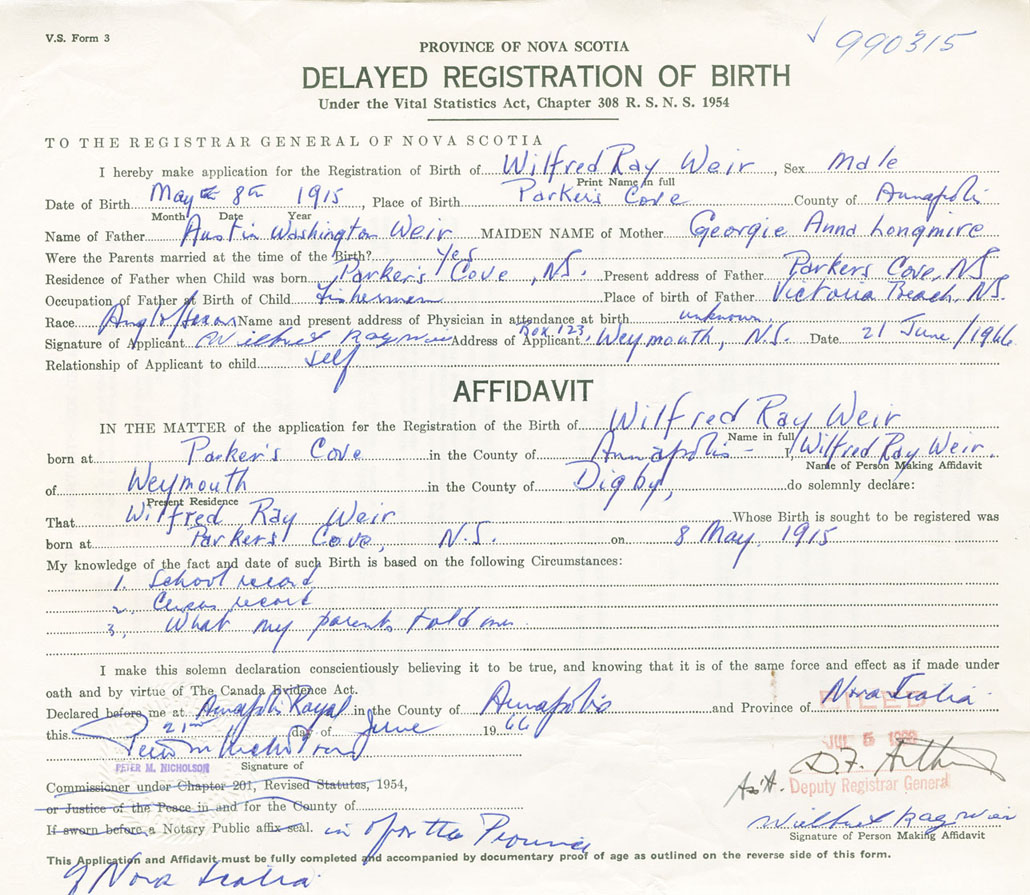 V.S. Form 3
990315
PROVINCE OF NOVA SCOTIA
DELAYED REGISTRATION OF BIRTH
Under the Vital Statistics Act, Chapter 308 R. S. N. S. 1954
TO THE REGISTRAR GENERAL OF NOVA SCOTIA
I hereby make application for the Registration of Birth of Wilfred Ray Weir, Sex Male
Print Name in full
Date of Birth May 8th 1915, Place of Birth Parker's Cove County of Annapolis
Month Date Year
Name of Father Austin Washington Weir MAIDEN NAME of Mother Georgie Anna Longmire
Were the Parents married at the time of the Birth? Yes
Residence of Father when Child was born Parker's Cove, N.S. Present address of Father Parkers Cove, NS
Occupation of Father at Birth of Child fisherman Place of birth of Father Victoria Beach, N.S.
Race Anglo Saxon Name and present address of Physician in attendance at birth unknown.
Signature of Applicant Wilfred Ray Weir Address of Applicant Box 123, Weymouth, N.S. Date 21 June/1966
Relationship of Applicant to child self
AFFIDAVIT
IN THE MATTER of the application for the Registration of the Birth of Wilfred Ray Weir
Name in full
born at Parker's Cove in the County of Annapolis - I, Wilfred Ray Weir.
Name of Person Making Affidavit
of Weymouth in the County of Digby, do solemnly declare:
Present Residence
That Wilfred Ray Weir Whose Birth is sought to be registered was
born at Parkers Cove, N.S. on 8 May 1915
My knowledge of the fact and date of such Birth is based on the following Circumstances:
1. School record
2. Census record
3. What my parents told me
I make this solemn declaration conscientiously believing it to be true, and knowing that it is of the same force and effect as if made under
oath and by virtue of The Canada Evidence Act.
Declared before me at Annapolis Royal in the County of Annapolis and Province of Nova Scotia
FILED
this 21st day of June 1966
Peter M Nicholson
PETER M. NICHOLSON
Signature of
Commissioner under Chapter 201, Revised Statutes, 1954,
or Justice of the Peace in and for the County of
Deputy Registrar General
If sworn before a Notary Public affix seal. in & for the Province
Wilfred Ray Weir
Signature of Person Making Affidavit
This Application and Affidavit must be fully completed and accompanied by documentary proof of age as outlined on the reverse side of this form.
of Nova Scotia